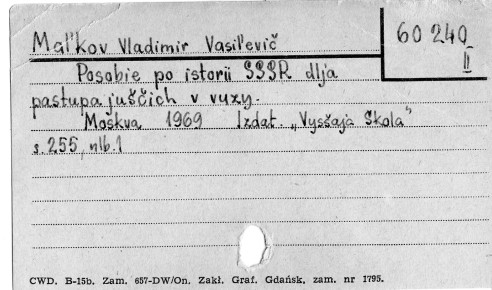 Mal'kov Vladimir Vasil'evič
60 240
II
Posobie po istorii SSSR dlja
pastupajuščich v vuzy.
Moškva 1969 Izdat. „Vysšaja Skola"
s. 255, nlb. 1
CWD. B-15b. Zam. 657-DW/On. Zakł. Graf. Gdańsk, zam. nr 1795.